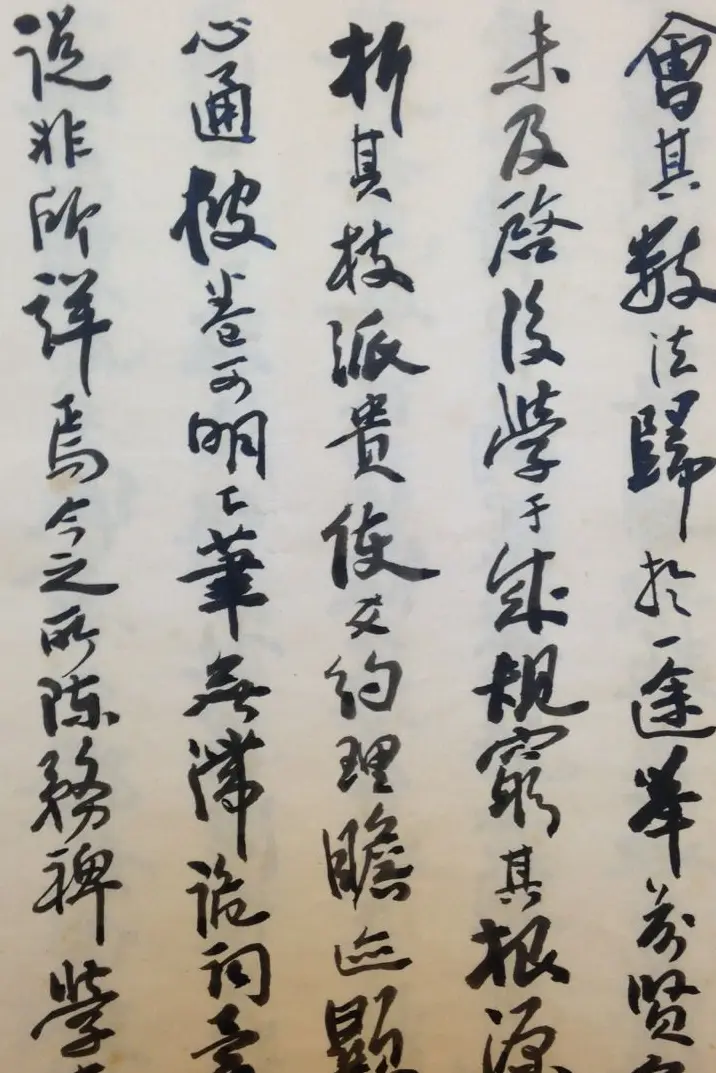 會其數法歸於一途舉前賢
未及啓後學于成規窮其根源
析其枝派貴使文約理瞻迹顯
心通披卷可明下筆無滯詭詞
說非所詳焉今之所陳務裨學